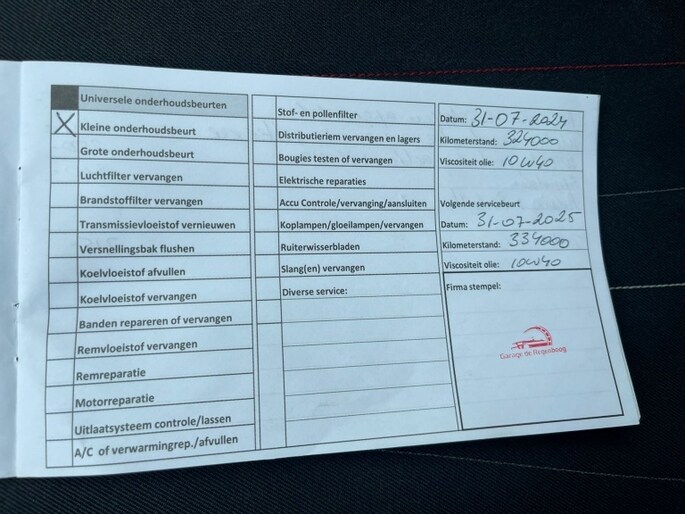 Universele onderhoudsbeurten
X Kleine onderhoudsbeurt
Grote onderhoudsbeurt
Luchtfilter vervangen
Brandstoffilter vervangen
Transmissievloeistof vernieuwen
Versnellingsbak flushen
Koelvloeistof afvullen
Koelvloeistof vervangen
Banden repareren of vervangen
Remvloeistof vervangen
Remreparatie
Motorreparatie
Uitlaatsysteem controle/lassen
A/C of verwarmingrep./afvullen
Stof- en pollenfilter
Distributieriem vervangen en lagers
Bougies testen of vervangen
Elektrische reparaties
Accu Controle/vervanging/aansluiten
Koplampen/gloeilampen/vervangen
Ruiterwisserbladen
Slang(en) vervangen
Diverse service:
Datum: 31-07-2024
Kilometerstand: 324000
Viscositeit olie: 10W40
Volgende servicebeurt
Datum: 31-07-2025
Kilometerstand: 334000
Viscositeit olie: 10W40
Firma stempel:
Garage de Regenboog